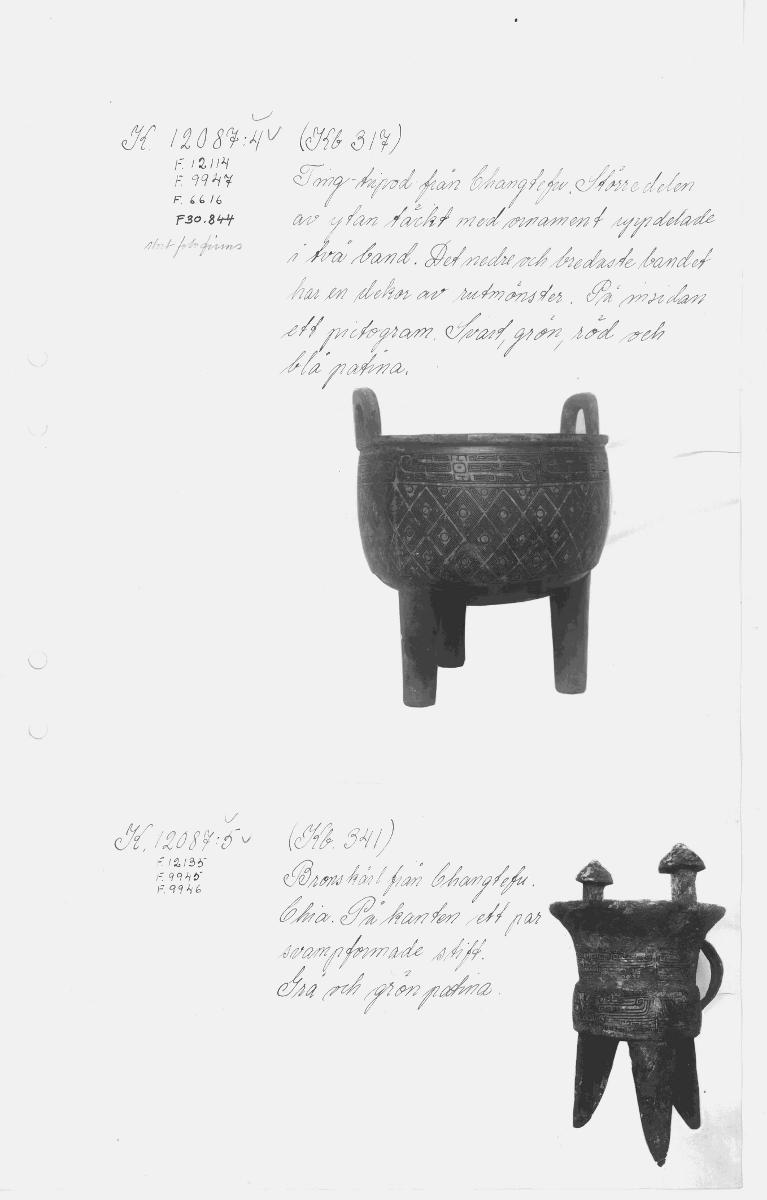 K. 12087:4 (Kb 317)
F. 12114
F. 9947
F. 6616
F 30.844
stort foto finns
Ting-tripod från Changtefu. Större delen
av ytan täckt med ornament uppdelade
i två band. Det nedre och bredaste bandet
har en dekor av rutmönster. På insidan
ett pictogram. Svart, grön, röd och
blå patina.
K. 12087:5 (Kb. 341)
F. 12135
F. 9945
F. 9946
Bronskärl från Changtefu.
Chia. På kanten ett par
svampformade stift.
Grå och grön patina.